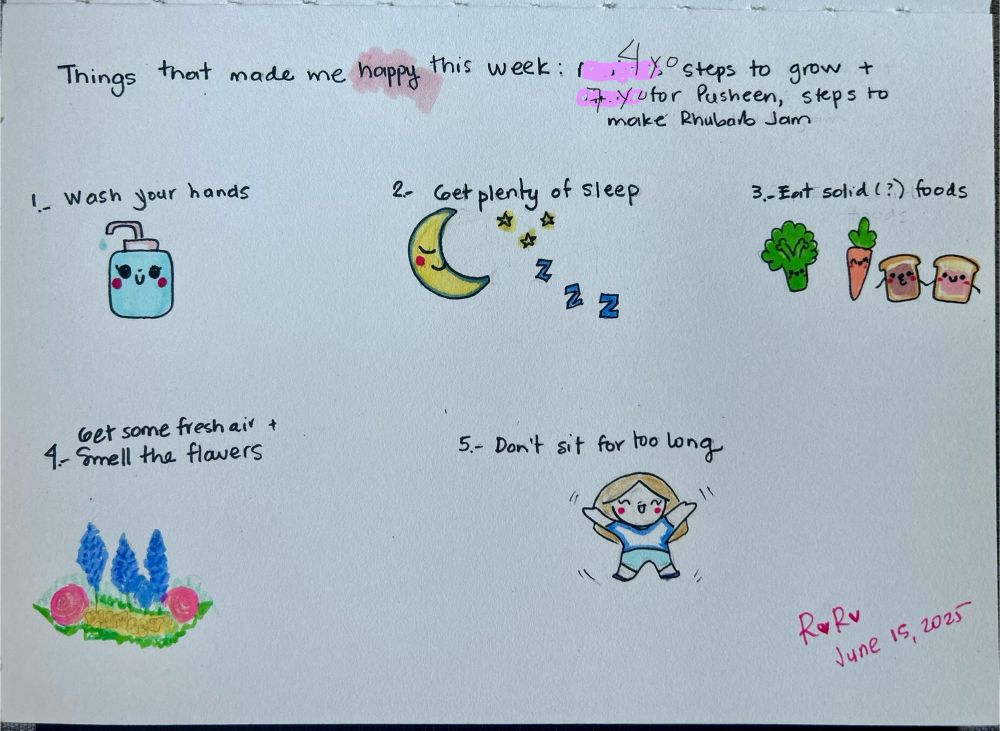 Things that made me happy this week: 4 yo steps to grow +
7 yo for Pusheen, steps to
make Rhubarb Jam
1.- Wash your hands
2.- Get plenty of sleep
z
z
z
3.- Eat solid (?) foods
Get some fresh air +
4.- Smell the flowers
5.- Don't sit for too long
R♥R♥
June 15, 2025